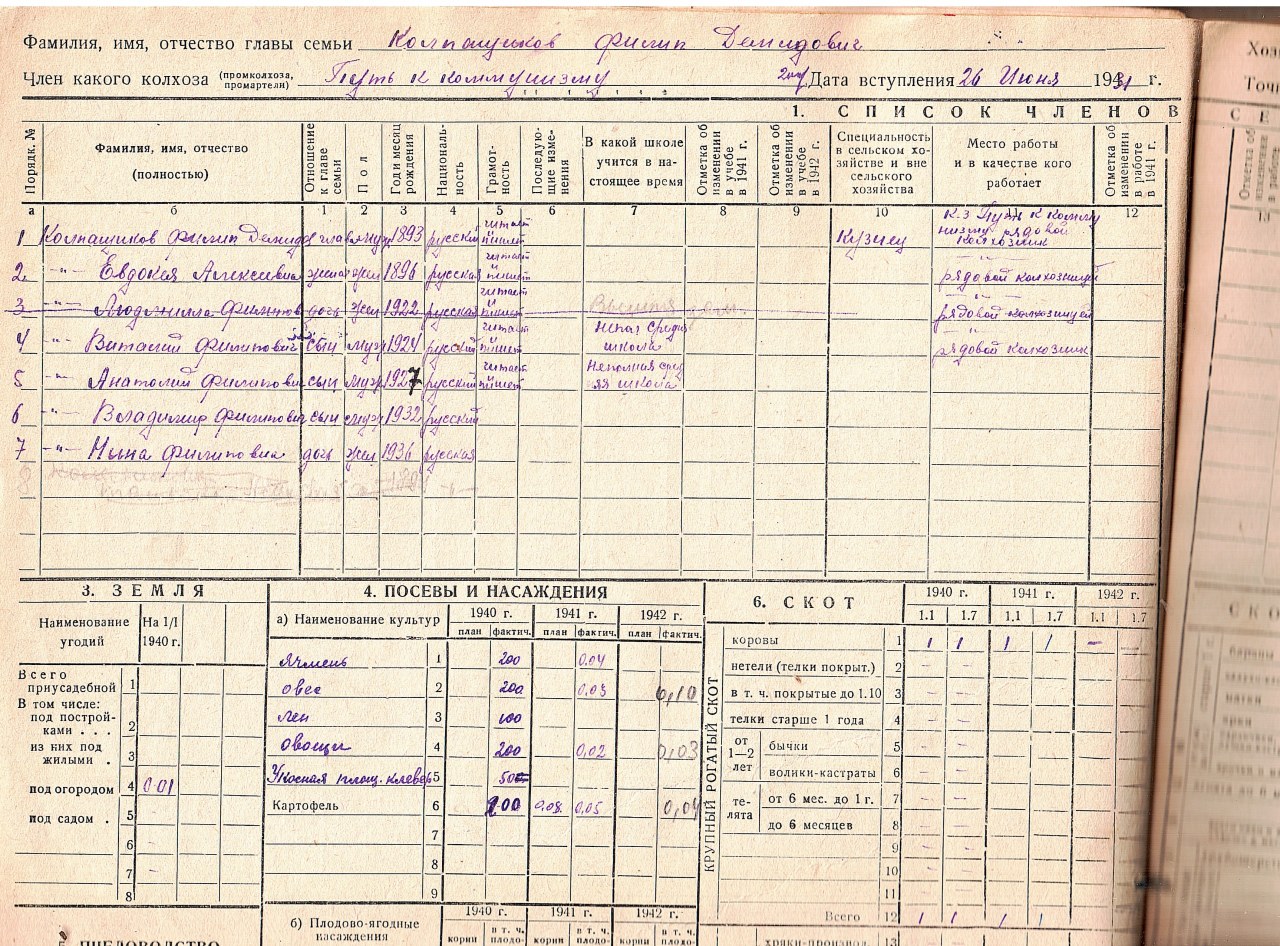 Фамилия, имя, отчество главы семьи Колпащиков Филип Демидович
Член какого колхоза (промколхоза, промартели) Путь к коммунизму Дата вступления 26 Июня 1931 г.
1. СПИСОК ЧЛЕНОВ
Порядк. № Фамилия, имя, отчество (полностью) Отношение к главе семьи Пол Год и месяц рождения Национальность Грамотность Последующие изменения В какой школе учится в настоящее время Отметка об изменении в учебе в 1941 г. Отметка об изменении в учебе в 1942 г. Специальность в сельском хозяйстве и вне сельского хозяйства Место работы и в качестве кого работает Отметка об изменении в работе в 1941 г.
а б 1 2 3 4 5 6 7 8 9 10 11 12
1 Колпащиков Филип Демидов глава муж 1893 русский читает пишет Кузнец к-з Путь к коммунизму рядовой колхозник
2. -"- Евдокия Алексеевна жена жен 1896 русская читает пишет рядовой колхозницей
3 -"- Людмила Филипов дочь жен 1922 русская читает и рядовой колхозницей
4 -"- Виталий Филипович сын муж 1924 русский читает пишет Непол средн школа рядовой колхозник
5 -"- Анатолий Филипович сын муж 1927 русский читает пишет Неполная сред яя школа
6 -"- Владимир Филипович сын муж 1932 русский
7 -"- Нина Филиповна дочь жен 1936 русская
8
3. ЗЕМЛЯ
Наименование угодий На 1/I 1940 г.
Всего приусадебной 1
В том числе: под постройками . . . 2
из них под жилыми . 3
под огородом 4 0.01
под садом . 5
6
7
8
4. ПОСЕВЫ И НАСАЖДЕНИЯ
а) Наименование культур 1940 г. 1941 г. 1942 г.
план фактич. план фактич. план фактич.
Ячмень 1 200 0.04
овес 2 200 0.03 0,10
лен 3 100
овощи 4 200 0,02 0,03
Укосная площ. клевер 5 500
Картофель 6 200 0.08 0,05 0,04
7
8
9
б) Плодово-ягодные насаждения 1940 г. 1941 г. 1942 г.
корни в т. ч. плодо- корни в т. ч. плодо- корни в т. ч. плодо-
6. СКОТ
1940 г. 1941 г. 1942 г.
1.1 1.7 1.1 1.7 1.1 1.7
КРУПНЫЙ РОГАТЫЙ СКОТ
коровы 1 1 1 1 1 -
нетели (телки покрыт.) 2
в т. ч. покрытые до 1.10 3
телки старше 1 года 4
от 1—2 лет бычки 5
волики-кастраты 6
телята от 6 мес. до 1 г. 7
до 6 месяцев 8
9
10
11
Всего 12 1 1 1 1
хряки-производ. 13
ПЧЕЛОВОДСТВО